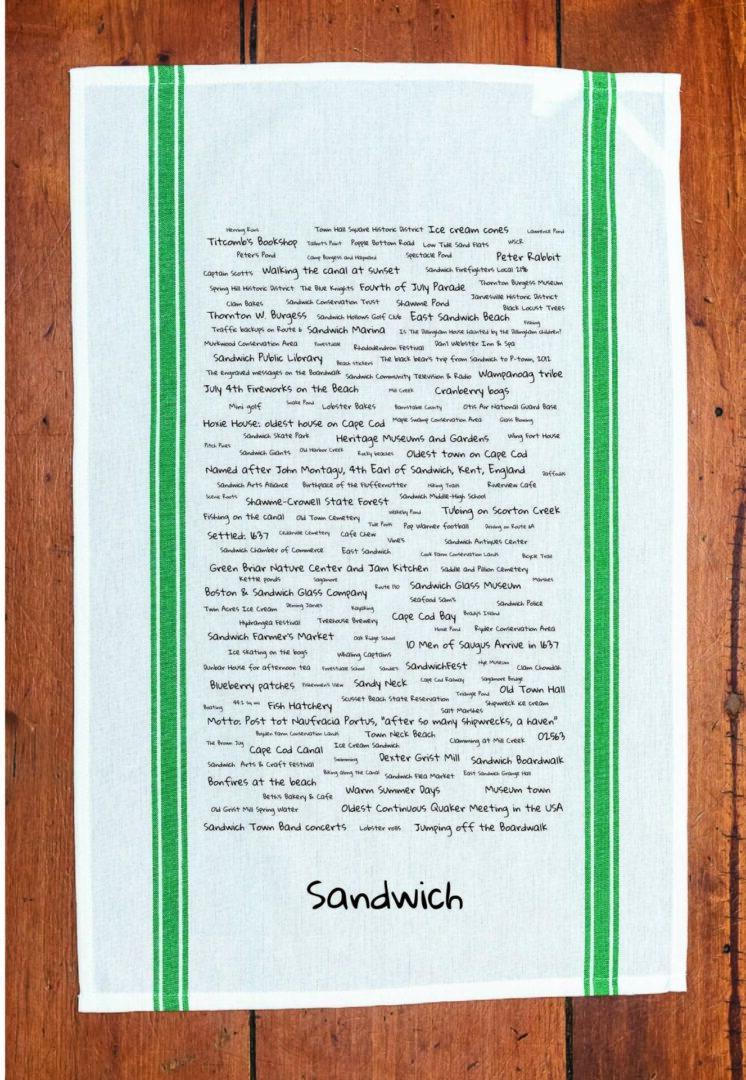 Herring Runs Town Hall Square Historic District Ice cream cones Lawrence Pond
Titcomb's Bookshop Talbots Point Popple Bottom Road Low Tide Sand Flats WSCR
Peter's Pond Camp Burgess and Hayward Spectacle Pond Peter Rabbit
Captain Scotts Walking the canal at sunset Sandwich Firefighters Local 2196
Spring Hill Historic District The Blue Knights Fourth of July Parade Thornton Burgess Museum
Clam Bakes Sandwich Conservation Trust Shawme Pond Jarvesville Historic District
Thornton W. Burgess Sandwich Hollows Golf Club East Sandwich Beach Black Locust Trees
Traffic backups on Route 6 Sandwich Marina Is The Dillingham House haunted by the Dillingham children? Fishing
Murkwood Conservation Area Forestdale Rhododendron Festival Dan'l Webster Inn & Spa
Sandwich Public Library Beach stickers The black bear's trip from Sandwich to P-town, 2012
The engraved messages on the Boardwalk Sandwich Community Television & Radio Wampanoag tribe
July 4th Fireworks on the Beach Mill Creek Cranberry bogs
Mini golf Snake Pond Lobster Bakes Barnstable County Otis Air National Guard Base
Hoxie House: oldest house on Cape Cod Maple Swamp Conservation Area Glass Blowing
Sandwich Skate Park Heritage Museums and Gardens Wing Fort House
Pitch Pines Sandwich Giants Old Harbor Creek Rocky beaches Oldest town on Cape Cod
Named after John Montagu, 4th Earl of Sandwich, Kent, England Daffodils
Sandwich Arts Alliance Birthplace of the Fluffernutter Hiking Trails Riverview Cafe
Scenic Roots Shawme-Crowell State Forest Sandwich Middle-High School
Fishing on the canal Old Town Cemetery Wakeby Pond Tubing on Scorton Creek
Tide Pools Pop Warner football Driving on Route 6A
Settled: 1637 Cedarville Cemetery Cafe Chew Vines Sandwich Antiques Center
Sandwich Chamber of Commerce East Sandwich Cook Farm Conservation Lands Bicycle Trail
Green Briar Nature Center and Jam Kitchen Saddle and Pillion Cemetery
Kettle ponds Sagamore Route 130 Sandwich Glass Museum Marshes
Boston & Sandwich Glass Company Seafood Sam's
Twin Acres Ice Cream Deming Jarves Kayaking Sandwich Police
Hydrangea Festival Treehouse Brewery Cape Cod Bay Brady's Island
Sandwich Farmer's Market Oak Ridge School Hoxie Pond Ryder Conservation Area
Ice skating on the bogs Whaling Captains 10 Men of Saugus Arrive in 1637
Dunbar House for afternoon tea Forestdale School Sandies SandwichFest Nye Museum Clam Chowdah
Blueberry patches Fishermen's View Sandy Neck Cape Cod Railway Sagamore Bridge
Scusset Beach State Reservation Triangle Pond Old Town Hall
Boating 44.2 sq mi Fish Hatchery Salt Marshes Shipwreck ice cream
Motto: Post tot Naufracia Portus, "after so many shipwrecks, a haven"
Boyden Farm Conservation Lands Town Neck Beach Clamming at Mill Creek 02563
The Brown Jug Cape Cod Canal Ice Cream Sandwich
Sandwich Arts & Craft Festival Swimming Dexter Grist Mill Sandwich Boardwalk
Biking along the Canal Sandwich Flea Market East Sandwich Grange Hall
Bonfires at the beach Warm Summer Days Museum town
Beth's Bakery & Cafe
Old Grist Mill Spring Water Oldest Continuous Quaker Meeting in the USA
Sandwich Town Band concerts Lobster rolls Jumping off the Boardwalk
Sandwich